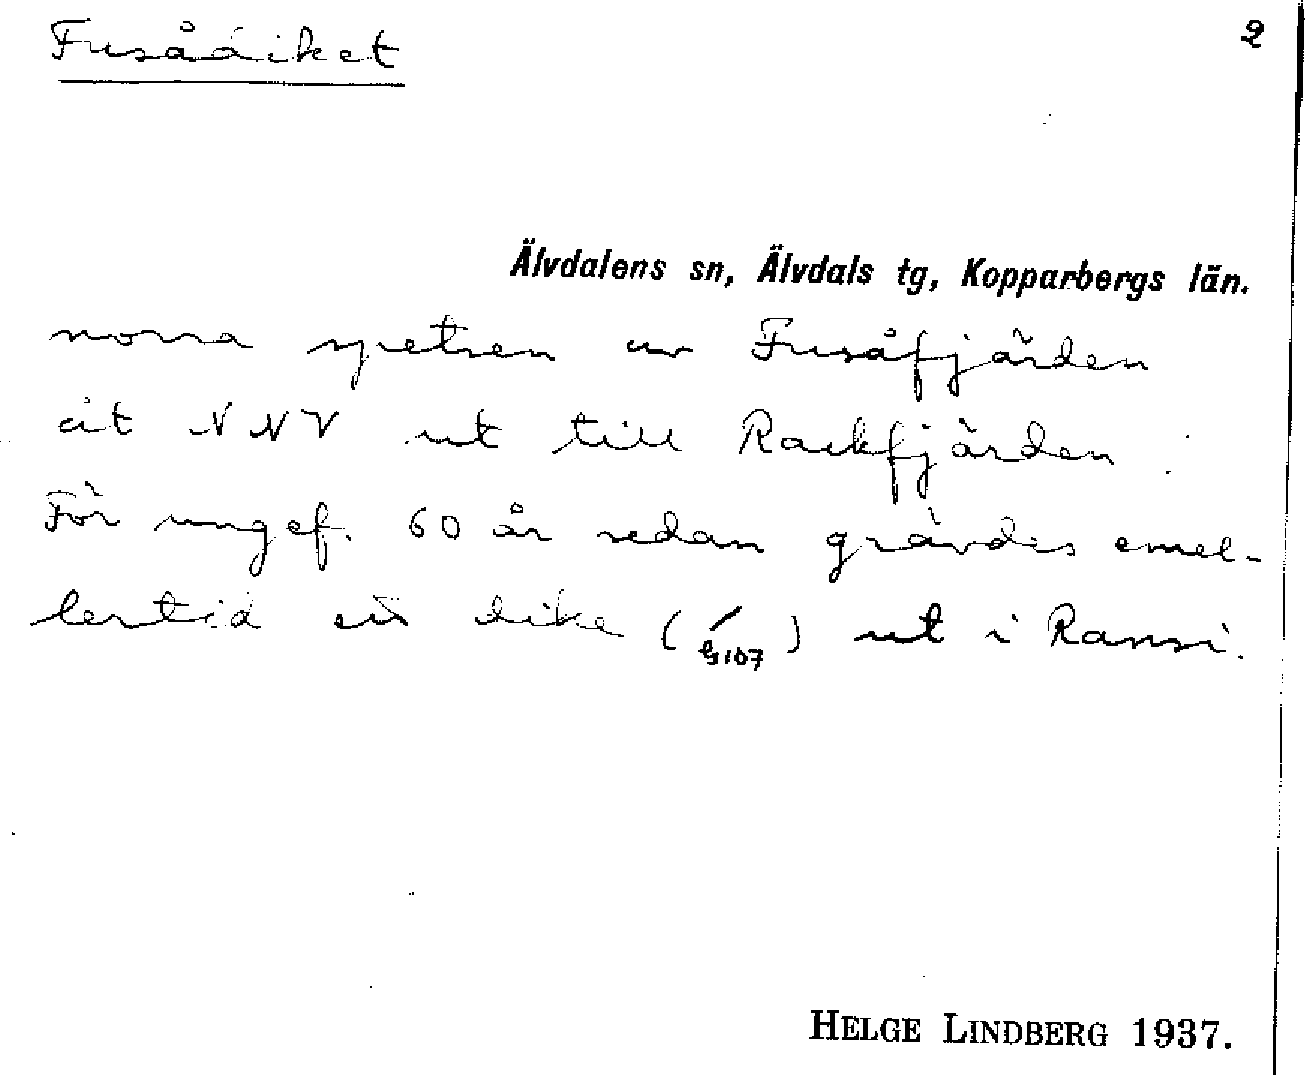 Fusådiket 2
Älvdalens sn, Älvdals tg, Kopparbergs län.
norra spetsen av Fusåfjärden
åt NNV ut till Rackfjärden.
För ungef. 60 år sedan grävdes emel-
lertid ett dike ( ) ut i Ransi.
HELGE LINDBERG 1937.